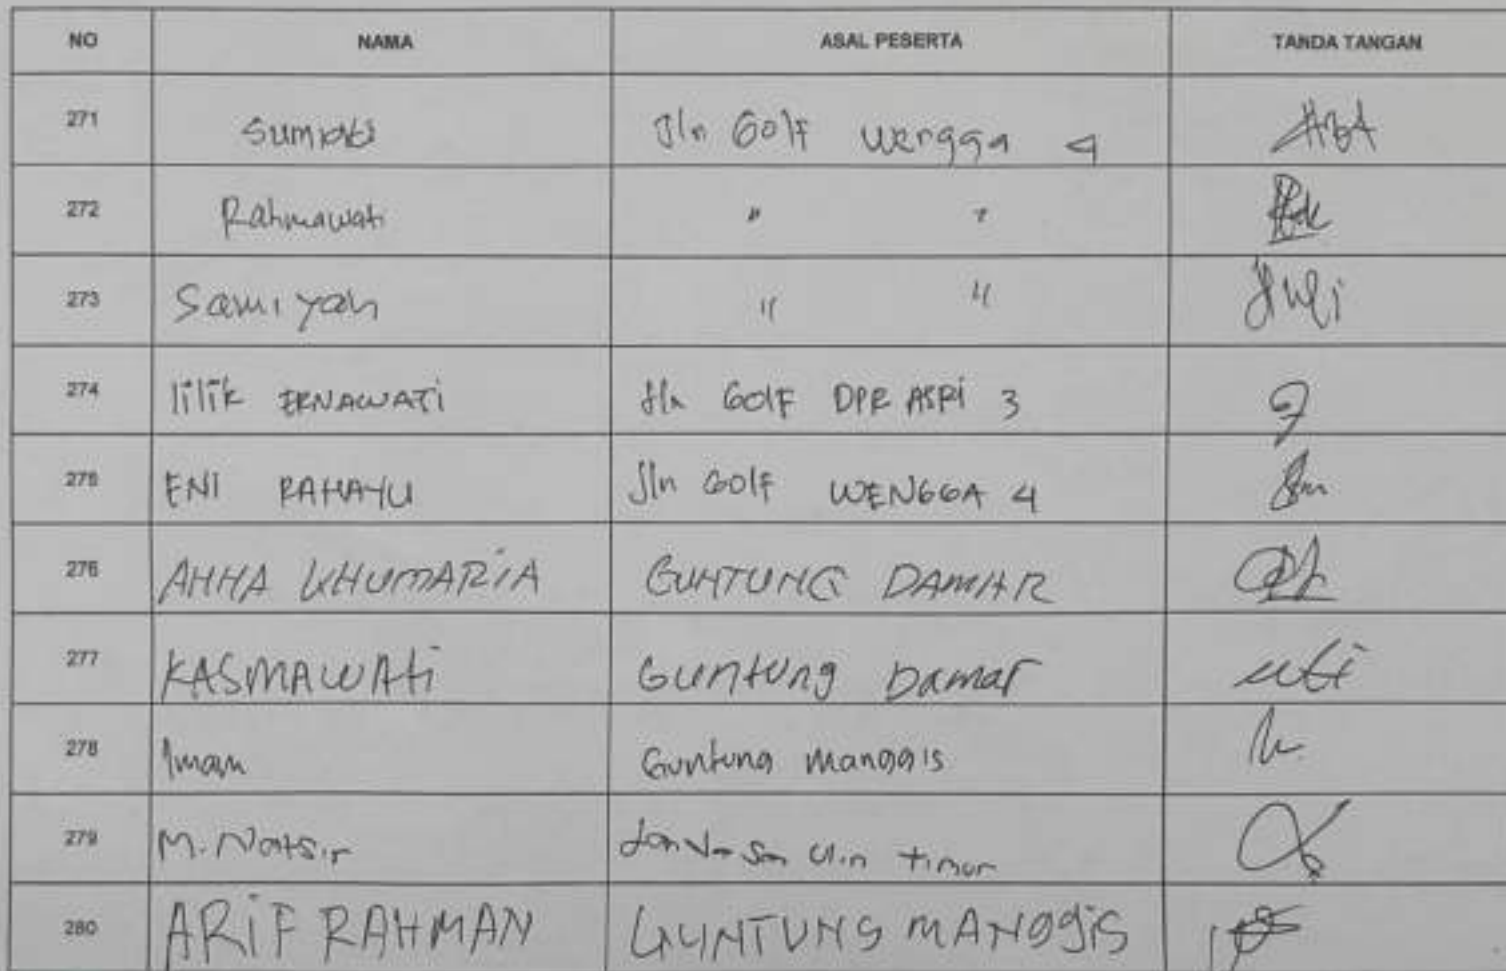 NO NAMA ASAL PESERTA TANDA TANGAN
271 Sumiati Jln Golf Wengga 4
272 Rahmawati " "
273 Samiyah " "
274 lilik ERNAWATi Jln GOlF DPR ASRi 3
275 ENI RAHAYU Jln GOlF WENGGA 4
276 ANNA KHUMARiA GUNTUNG DAMAR
277 KASMAWATi Guntung Damar
278 Iman Guntung Manggis
279 M. Natsir Ulin timur
280 ARiF RAHMAN GUNTUNG MANggiS